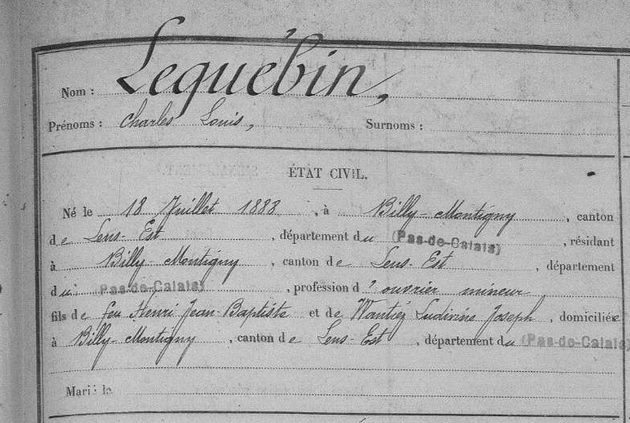 Nom : Lequébin,
Prénoms : Charles Louis, Surnoms :
ÉTAT CIVIL.
Né le 18 Juillet 1888, à Billy-Montigny, canton
de Lens-Est, département du (Pas-de-Calais), résidant
à Billy-Montigny, canton de Lens-Est, département
du Pas-de-Calais), profession d'ouvrier mineur
fils de feu Henri Jean-Baptiste et de Wantiez Ludivine Joseph, domiciliée
à Billy-Montigny, canton de Lens-Est, département du (Pas-de-Calais)
Marié le